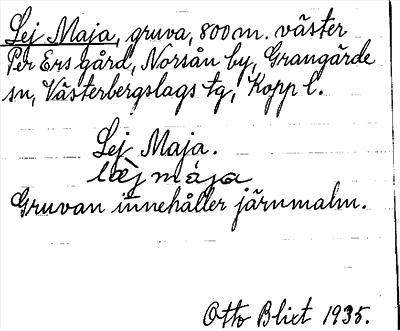 Lej Maja, gruva, 800 m. väster
Per Ers gård, Norsån by, Grangärde
sn, Västerbergslags tg, Kopp l.
Lej Maja.
lèj màja
Gruvan innehåller järnmalm.
Otto Blixt 1935.